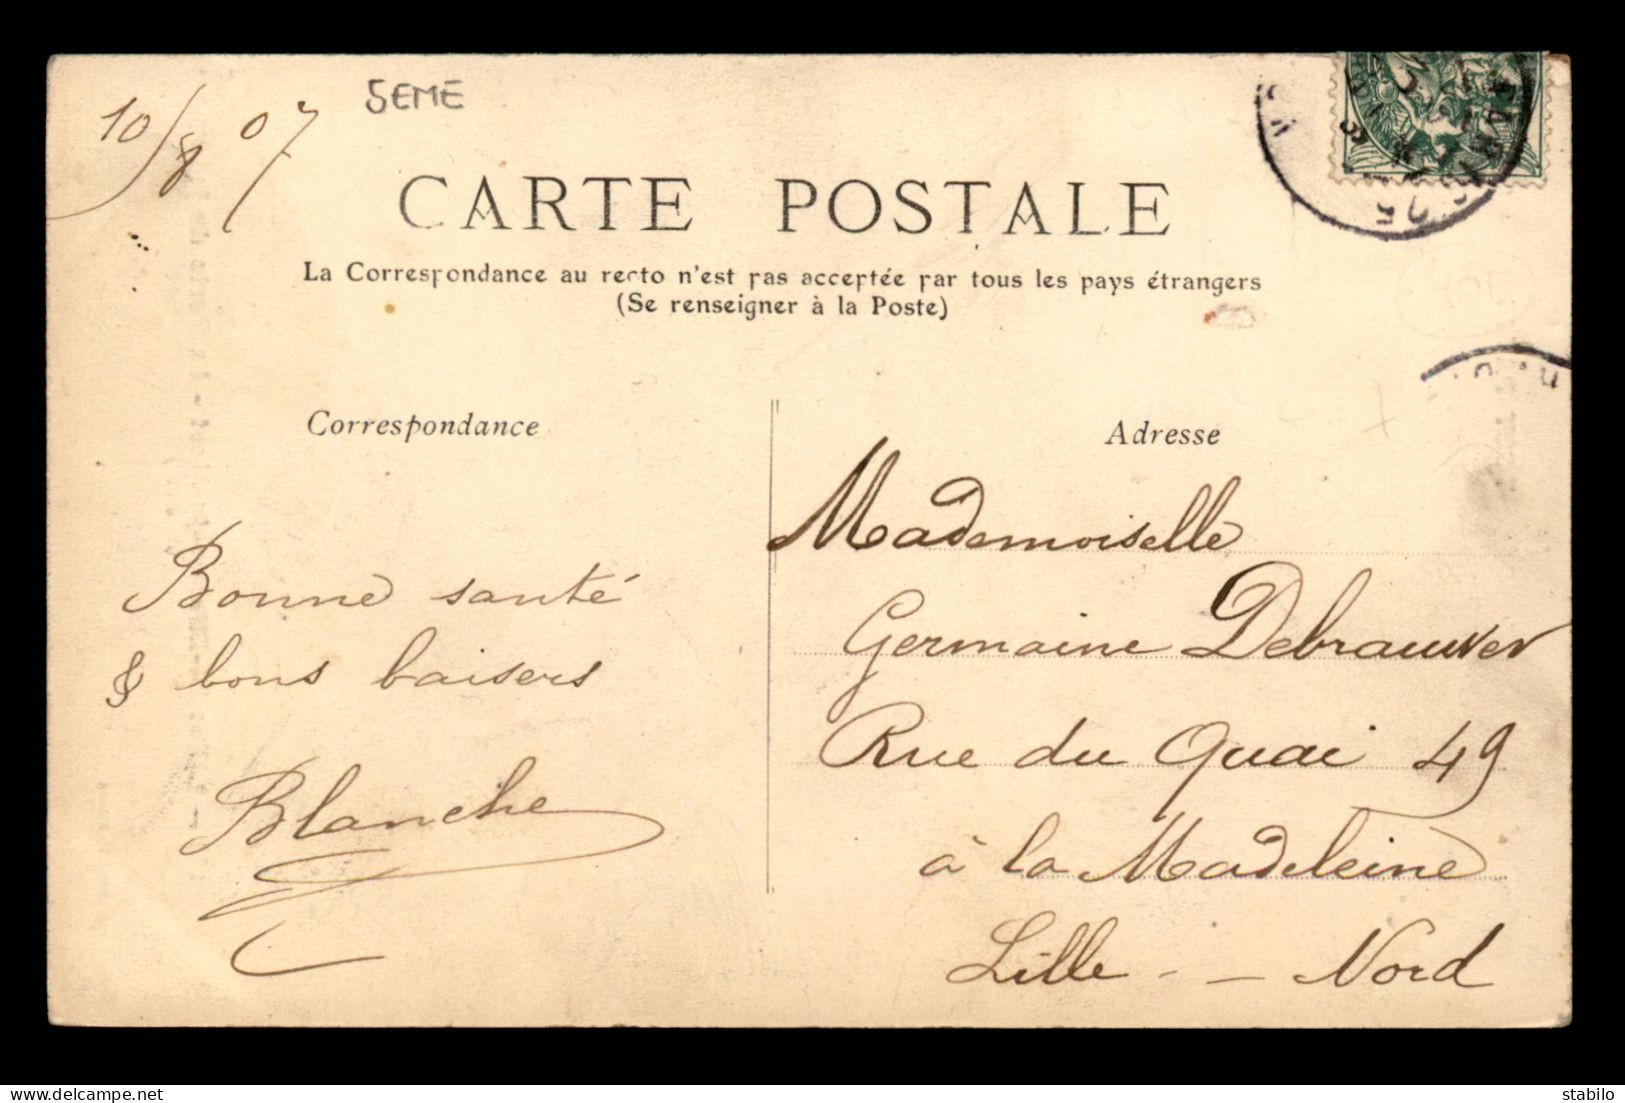 10/8 07
5EME
CARTE POSTALE
La Correspondance au recto n'est pas acceptée par tous les pays étrangers
(Se renseigner à la Poste)
Correspondance
Adresse
Bonne santé
& bons baisers
Blanche
Mademoiselle
Germaine Debrauwer
Rue du Quai 49
à la Madeleine
Lille - - Nord
stabilo